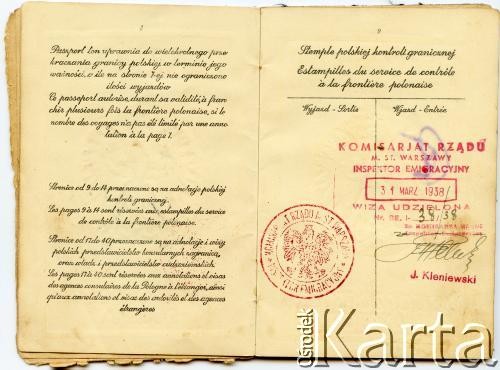 Paszport ten uprawnia do wielokrotnego prze-
kraczania granicy polskiej w terminie jego
ważności, o ile na stronie 7-ej nie ograniczono
ilości wyjazdów
Ce passeport autorise, durant sa validité, à fran-
chir plusieurs fois la frontière polonaise, si le
nombre des voyages n'a pas été limité par une anno-
tation à la page 7.
Stronice od 9 do 14 przeznaczone są na adnotacje polskiej
kontroli granicznej.
Les pages 9 à 14 sont réservées aux estampilles du service
de contrôle à la frontière polonaise.
Stronice od 17 do 40 przeznaczone są na adnotacje i wizy
polskich przedstawicielstw konsularnych zagranicą,
oraz władz i przedstawicielstw cudzoziemskich.
Les pages 17 à 40 sont réservées aux annotations et visas
des agences consulaires de la Pologne à l'étranger, ainsi
qu'aux annotations et visas des autorités et des agences
étrangères
9
Stemple polskiej kontroli granicznej
Estampilles du service de contrôle
à la frontière polonaise
Wyjazd - Sortie Wjazd - Entrée
KOMISARJAT RZĄDU
M. ST. WARSZAWY
INSPEKTOR EMIGRACYJNY
31 MARZ 1938
WIZA UDZIELONA
Nr. RE. I- 38/38
J. Kleniewski
ośrodek Karta